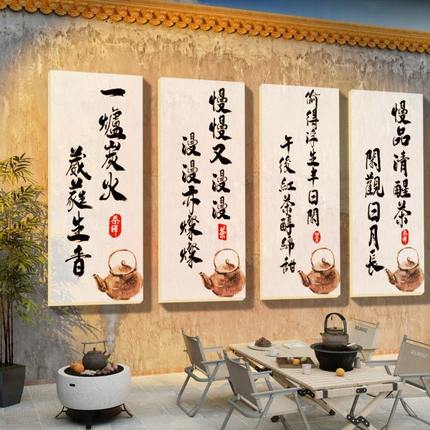 一爐炭火
葳蕤生香
茶禅
慢慢又漫漫
漫漫亦燦燦
茶
偷得浮生半日閒
午後紅茶時綿甜
慢品清醒茶
閑觀日月長